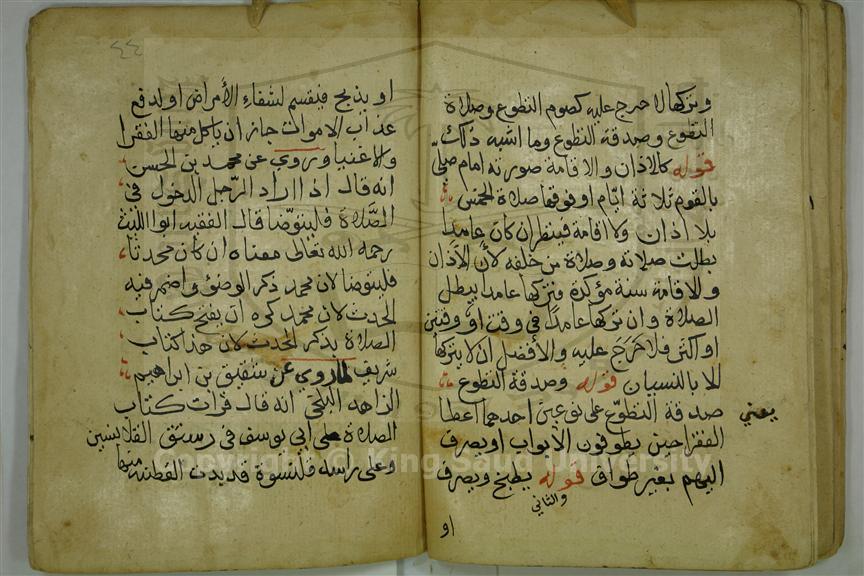 وتركها لا حرج عليه كصوم التطوع وصلاة
التطوع وصدقة التطوع وما اشبه ذلك
قوله كالاذان والاقامة صورته امام صلى
بالقوم ثلاثة ايام او فوقها صلاة الخمس
بلا اذان ولا اقامة فينظر ان كان عامدا
بطلت صلاته وصلاة من خلفه لأن الأذان
والاقامة سنة مؤكدة وتركها عامدا يبطل
الصلاة وان تركها عامدا في وقت او وقتين
او اكثر فلا حَرَجَ عليه والأفضل ان لا يتركها
الا بالنسيان قوله وصدقة التطوع
صدقة التطوّع على نوعين احدهما اعطا
يعني
الفقرا حين يطوفون الابواب او يصرف
اليهم بغير طواف قوله يطبخ ويصرف
والثاني
او
٤٤
او يذبح فيقسم لشفاء الأمراض او لدفع
عذاب الاموات جاز ان ياكل منها الفقرا
والاغنيا وروي عن محمد بن الحسن
انه قال اذا اراد الرّجل الدخول في
الصَّلاة فليتوضّا قال الفقيه ابوا الليث
رحمه الله تعالى معناه ان كان محدثا
فليتوضا لان محمد ذكر الوضوُ واضمر فيه
الحدث لان محمد كره ان يفتح كتاب
الصلاة بذكر الحدث لان هذا كتاب
شريف لما روي عن شقيق بن ابراهيم
الزاهد البلخي انه قال قرات كتاب
الصلاة على ابي يوسف في رستق القلانسين
وعلى راسه قلنسوة قد بدت القطنة منها
Copyright © King Saud University